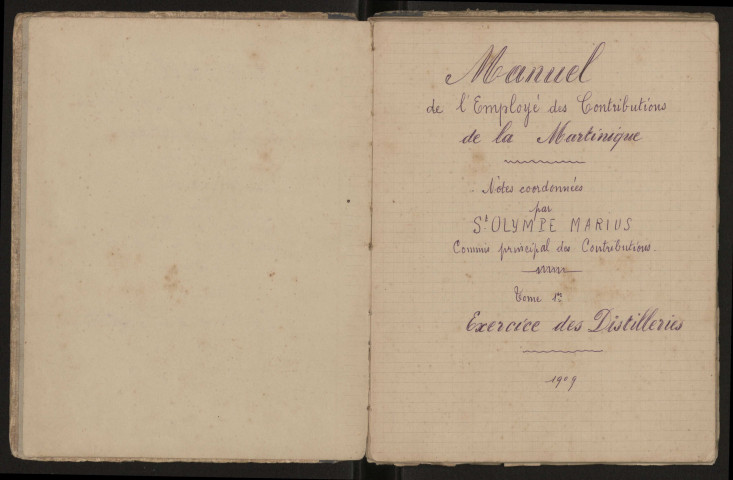 Manuel
de l'Employé des Contributions
de la Martinique
Notes coordonnées
par
St OLYMPE MARIUS
Commis principal des Contributions.
Tome 1er
Exercice des Distilleries
1909